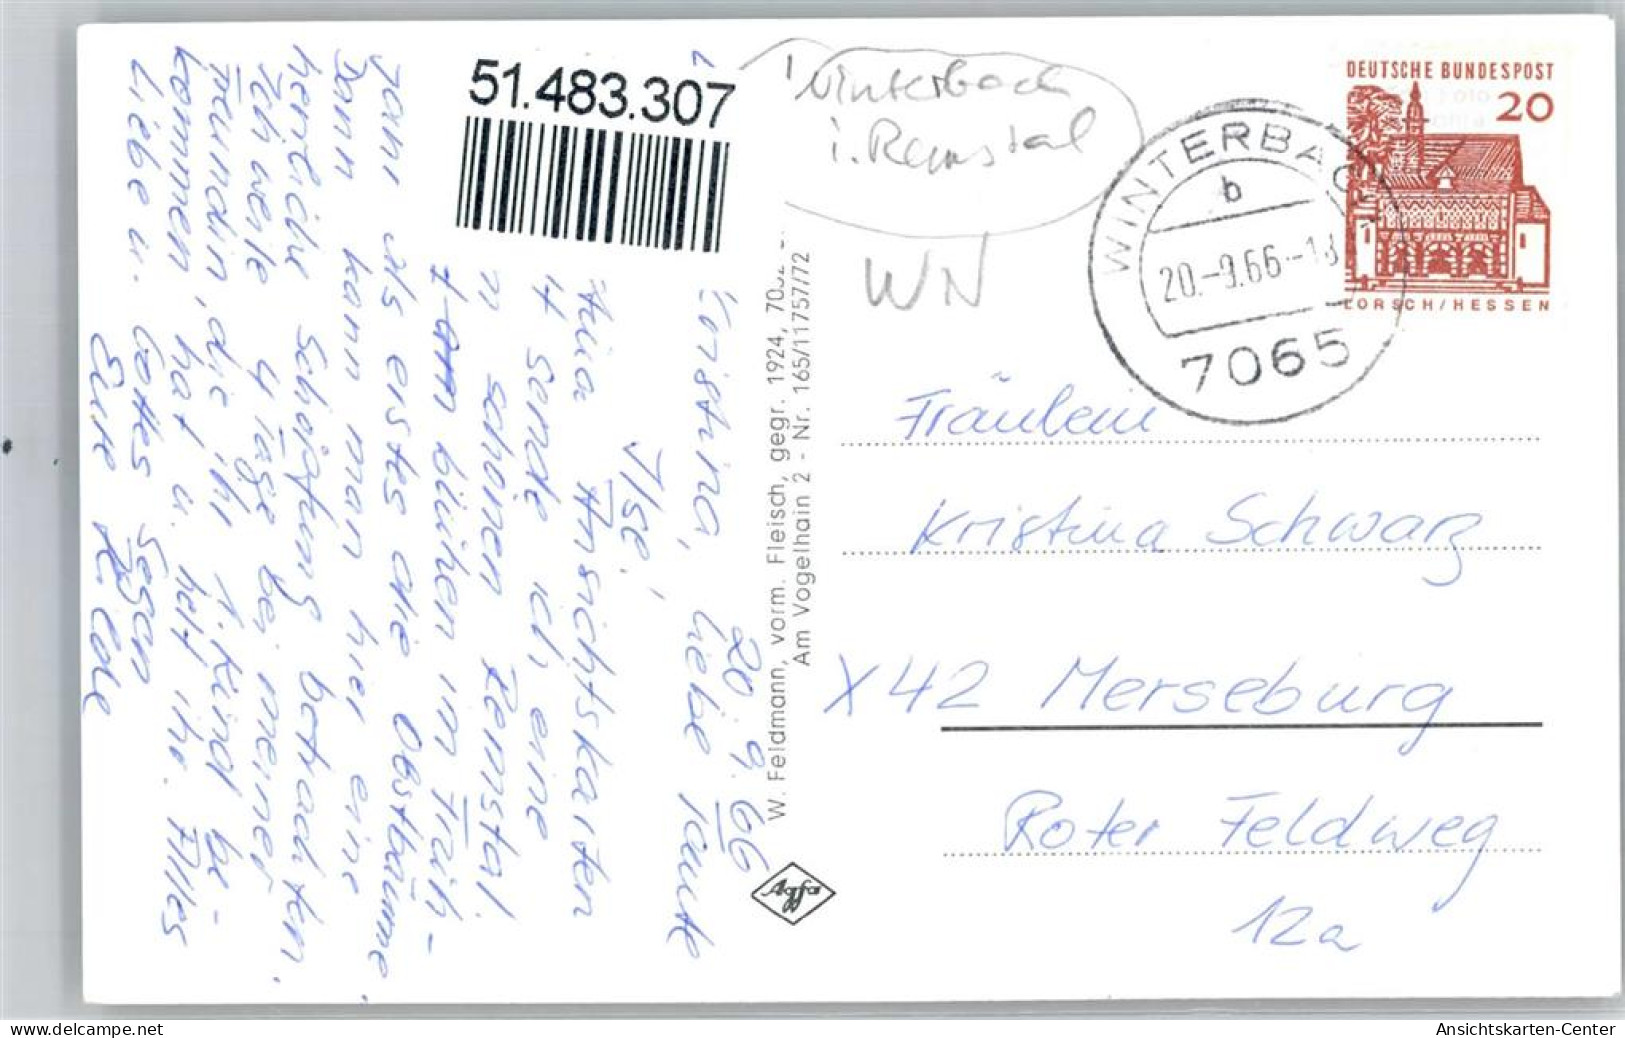 51.483.307
Winterbach
i. Remstal
WN
DEUTSCHE BUNDESPOST
20
LORSCH/HESSEN
WINTERBACH
b
20.-9.66-18
7065
20.9.66
Kristina, liebe Tante
Ilse!
Ansichtskarten
sende ich eine
schönen Remstal.
blühen im Früh-
jahr als erstes die Obstbäume,
Dann kann man hier eine
herrliche Schöpfung betrachten.
Ich werde 4 Tage bei meiner
Freundin, die ihr 1. Kind be-
kommen hat u. helf ihr. Alles
Liebe u. Gottes Segen
Eure Hilde
W. Feldmann, vorm. Fleisch, gegr. 1924,
Am Vogelhain 2 - Nr. 165/11757/72
Fräulein
Kristina Schwarz
X42 Merseburg
Roter Feldweg
12a
delcampe.net
Ansichtskarten-Center